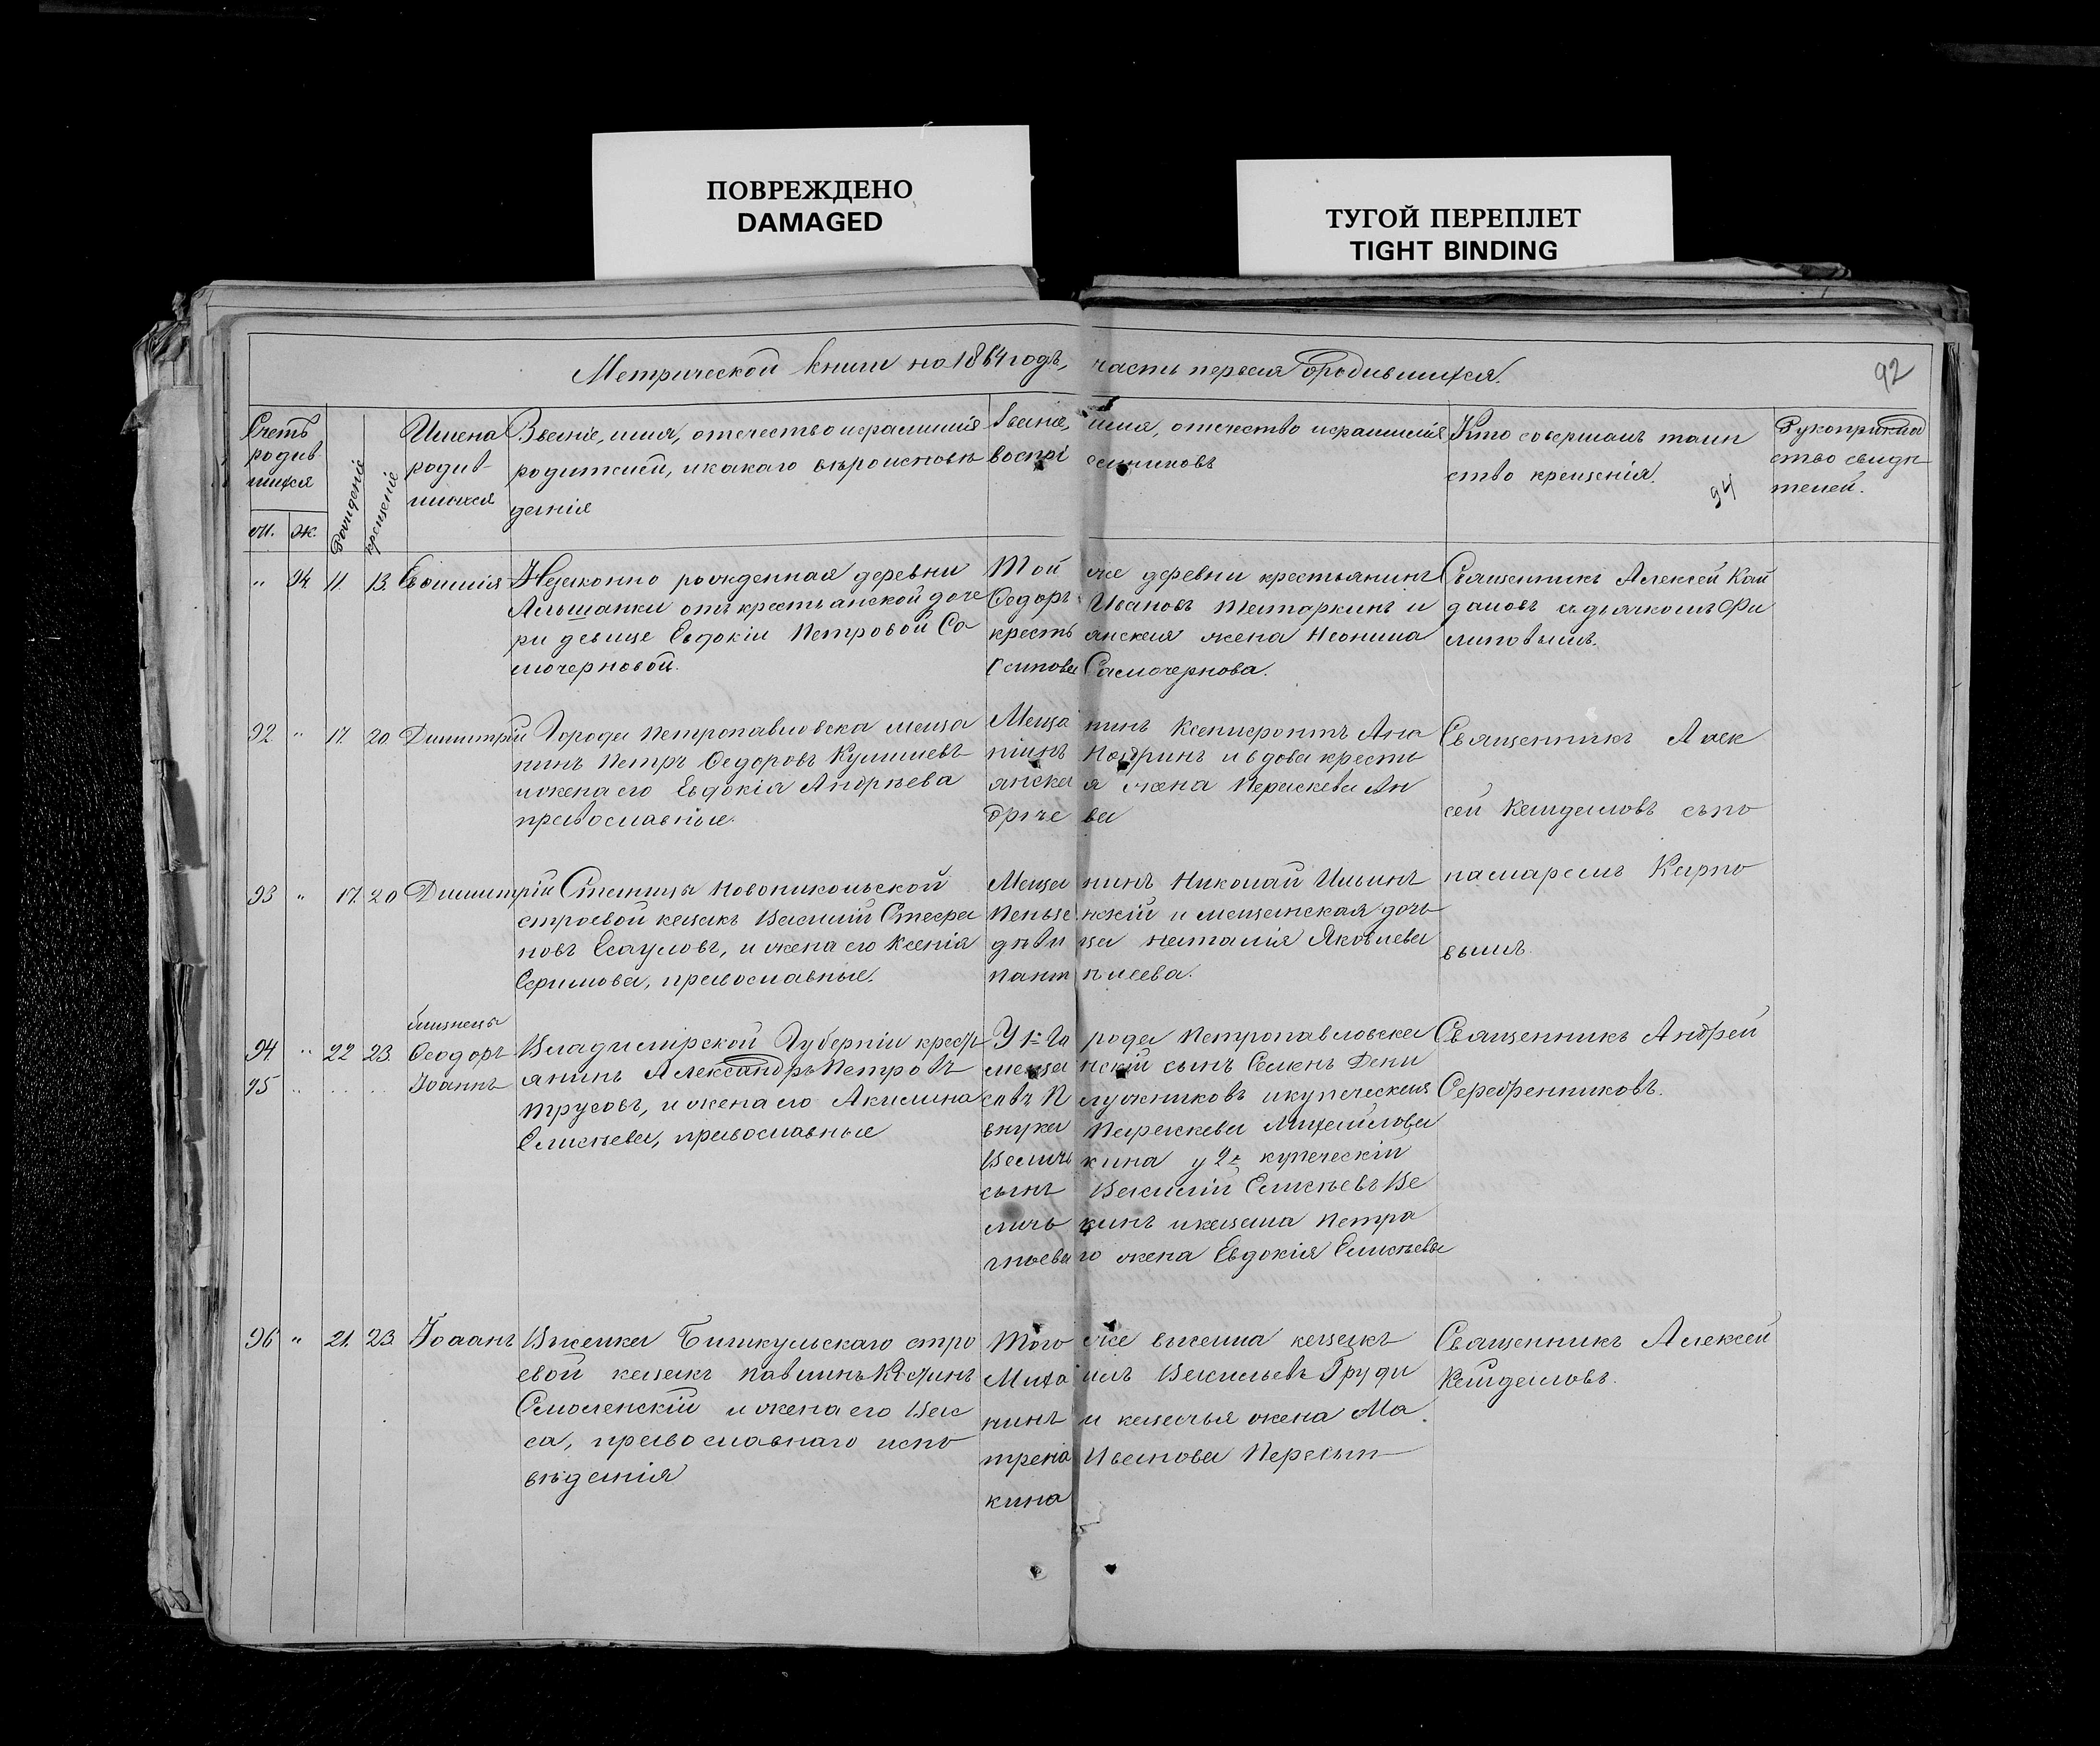 ПОВРЕЖДЕНО
DAMAGED
ТУГОЙ ПЕРЕПЛЕТ
TIGHT BINDING
Метрической книги на 1864 годъ, часть первая о родившихся.
92
Счетъ
родив
шихся
м. ж.
Рожденія
крещенія
Имена
родив-
шихся
Званіе, имя, отечество и фамилія
родителей, и какаго вѣроисповѣ
данія
Званіе, имя, отечество и фамилія
воспріемниковъ
Кто совершалъ таин
ство крещенія.
94
Рукоприкла
ство свидѣ
телей.
" 94 11. 13. Евфимія
Незаконно рожденная деревни
отъ крестьянской доче
ри девице Евдокіи Петровой Са
мочерновой.
Той же деревни крестьянинъ
Федоръ Ивановъ и
крестьянская жена Неонила
Осипова Самочернова.
Священникъ Алексей Кай
даловъ съ дьячкомъ Фи
липовымъ.
92 " 17. 20. Димитрій
Города Петропавловска меща
нинъ Петръ Федоровъ
и жена его Евдокія Андрѣева
православные.
Мещанинъ Ксенофонтъ Ана
ньинъ и вдова кресть
янская жена Параскева Ан
дрѣева
Священникъ Алек
сей Кайдаловъ съ по
намаремъ Карпо
вымъ.
93 " 17. 20 Димитрій
Станицы Новоникольской
строевой казакъ Василій Стефа
новъ Есауловъ, и жена его Ксенія
Ефимова, православные.
Мещанинъ Николай Ильинъ
и мещанская дочь
дѣвица Наталія Яковлева
Пантѣлеева.
близнецы
94 " 22 23. Феодоръ
95 " . . . . Іоаннъ
Владимірской Губерніи кресть
янинъ Александръ Петровъ
Трусовъ, и жена его Акилина
Елисѣева, православные
У 1го Города Петропавловска
мещанскій сынъ Семенъ Дени
совъ Плужниковъ и купеческая
внука Параскева Михайлова
Величкина у 2го купеческій
сынъ Василій Елисѣевъ Ве
личкинъ и казака Петра
жена Евдокія Елисѣева
Священникъ Андрей
Серебренниковъ.
96 " 21. 23. Іоаннъ
Выселка Бишкульскаго стро
евой казакъ
Смоленскій и жена его Вас
са, православнаго испо
вѣданія
Того же выселка казакъ
Михаилъ Васильевъ Груди
нинъ и казачья жена Ма
трена Иванова Перевыш
кина
Священникъ Алексей
Кайдаловъ.